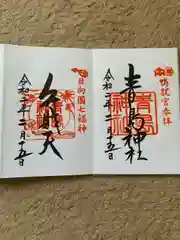 青島神社
青島神社
令和二年二月十五日
日向國七福神
弁財天
令和二年二月十五日